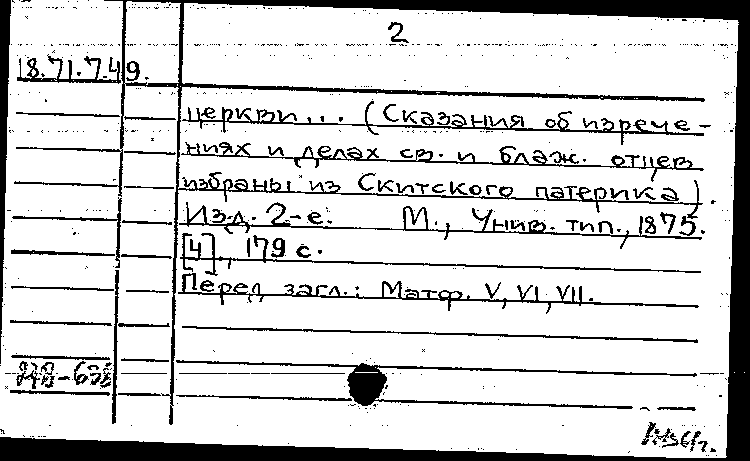 2
18.71.7.49.
церкви... (Сказания об изрече-
ниях и делах св. и блаж. отцев
избраны из Скитского патерика).
Изд. 2-е. М., Унив. тип., 1875.
[4], 179 с.
Перед загл.: Матф. V, VI, VII.